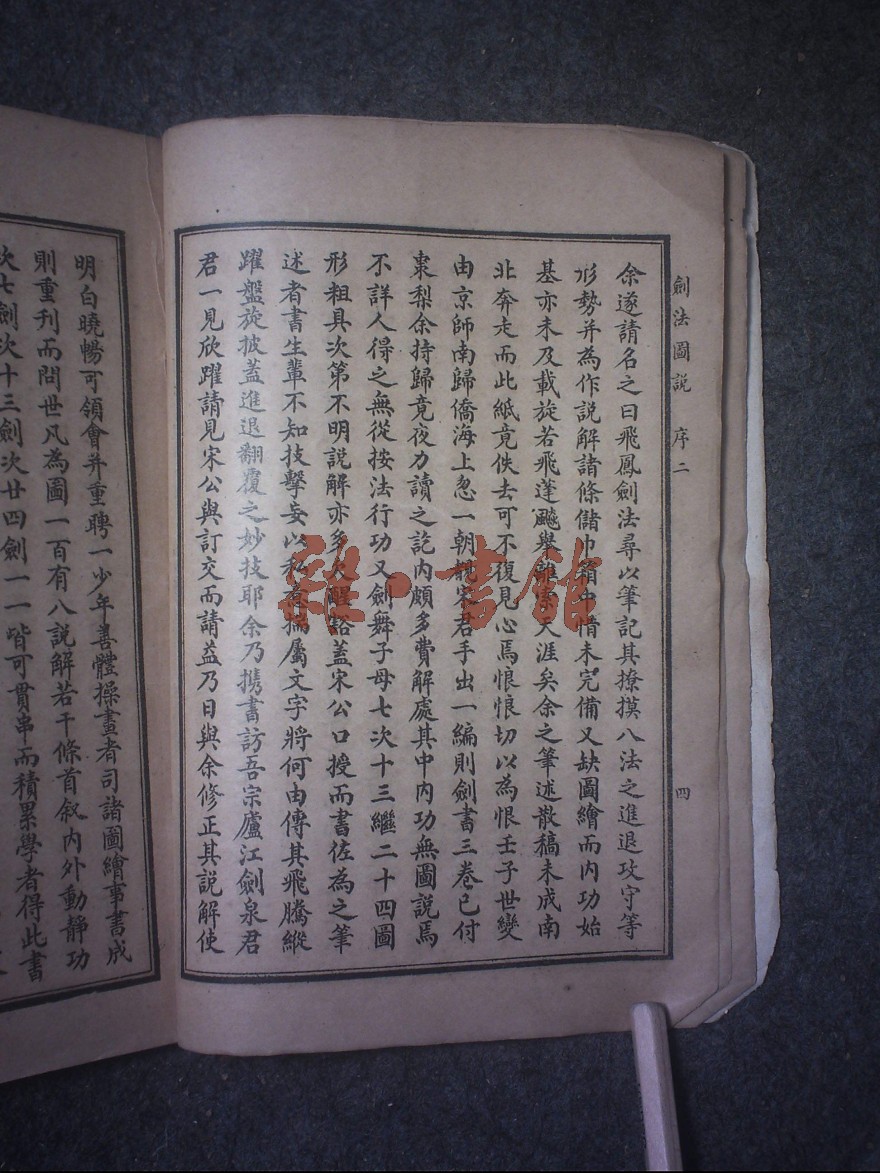 劍法圖說 序二 四
余遂請名之曰飛鳳劍法尋以筆記其撩摸八法之進退攻守等
形勢并為作說解諸條儲巾箱中惜未完備又缺圖繪而內功始
基亦未及載旋若飛蓬飈舉離索天涯矣余之筆述散稿未成南
北奔走而此紙竟佚去可不復見心焉悢悢切以為恨壬子世變
由京師南歸僑海上忽一朝親宋君手出一編則劍書三卷已付
棗梨余持歸竟夜力讀之訖內頗多費解處其中內功無圖說焉
不詳人得之無從按法行功又劍舞子母七次十三繼二十四圖
形粗具次第不明說解亦多欠醒豁蓋宋公口授而書佐為之筆
述者書生輩不知技擊妄以私意揣屬文字將何由傳其飛騰縱
躍盤旋披蓋進退翻覆之妙技耶余乃携書訪吾宗廬江劍泉君
君一見欣躍請見宋公與訂交而請益乃日與余修正其說解使
明白曉暢可領會并重聘一少年善體操畫者司諸圖繪事書成
則重刊而問世凡為圖一百有八說解若干條首叙內外動靜功
次七劍次十三劍次廿四劍一一皆可貫串而積累學者得此書
雜·書館